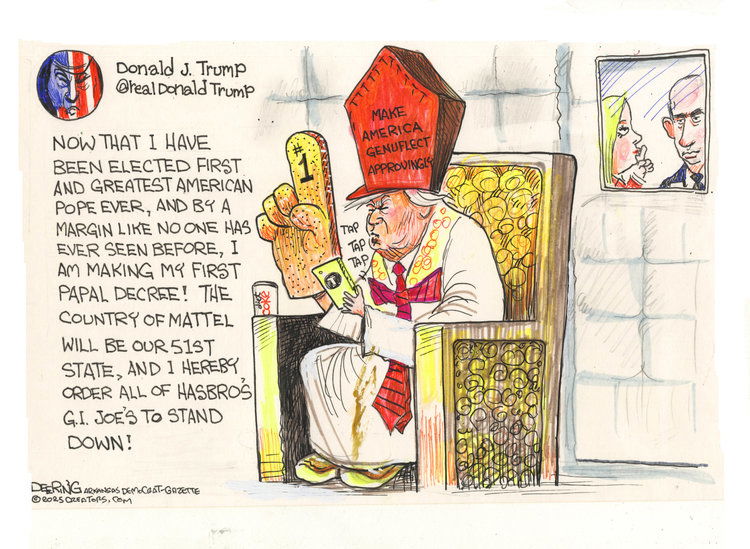 Donald J. Trump
@realDonaldTrump
NOW THAT I HAVE
BEEN ELECTED FIRST
AND GREATEST AMERICAN
POPE EVER, AND BY A
MARGIN LIKE NO ONE HAS
EVER SEEN BEFORE, I
AM MAKING MY FIRST
PAPAL DECREE! THE
COUNTRY OF MATTEL
WILL BE OUR 51ST
STATE, AND I HEREBY
ORDER ALL OF HASBRO'S
G.I. JOE'S TO STAND
DOWN!
MAKE
AMERICA
GENUFLECT
APPROVINGLY
#1
TAP
TAP
TAP
COKE
DEERING ARKANSAS DEMOCRAT-GAZETTE
©2025 CREATORS.COM